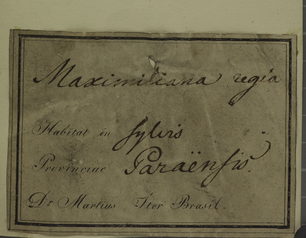 Maximiliana regia
Habitat in sylvis
Provinciae Paraënsis.
Dr Martius Iter Brasil.